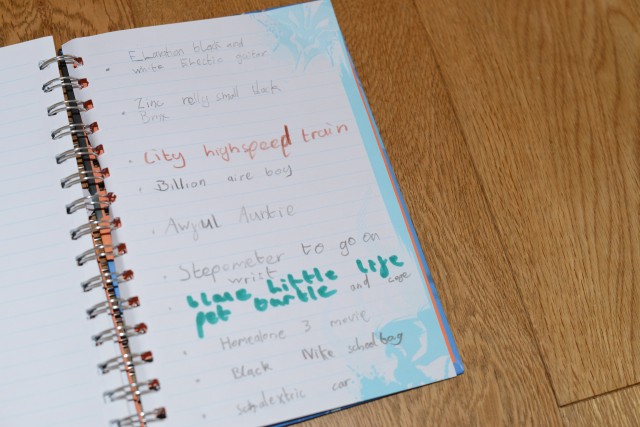 black and
white Electric guitar
Zinc really small black
City highspeed train
Billion aire boy
Awful Auntie
Stepometer to go on
wrist
blue little life
pet turtle and cage
Homealone 3 movie
Black Nike school bag
scalextric car